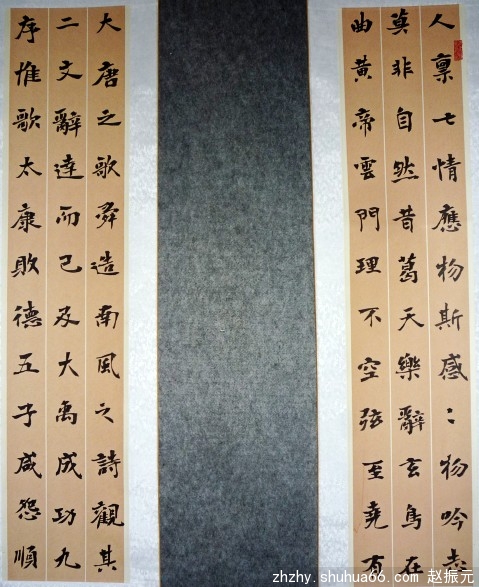 人稟七情應物斯感〻物吟志
莫非自然昔葛天樂辭玄鳥在
曲黃帝雲門理不空弦至堯有
大唐之歌舜造南風之詩觀其
二文辭達而已及大禹成功九
序惟歌太康敗德五子咸怨順
zhzhy.shuhua66.com 赵振元